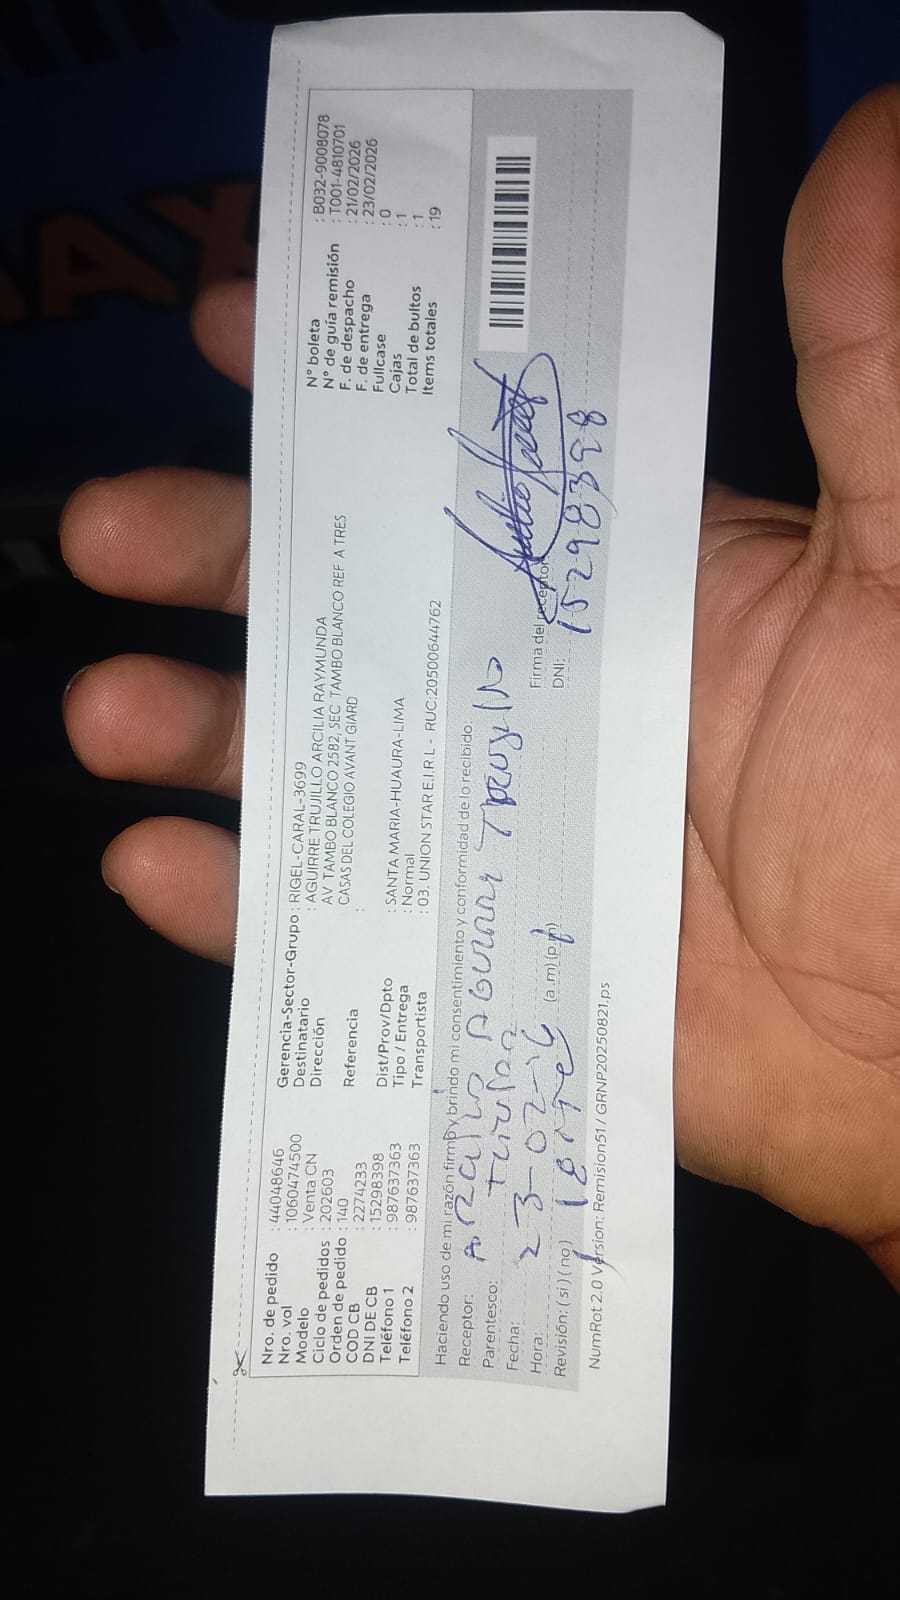 Nro. de pedido : 44048646
Nro. vol : 1060474500
Modelo : Venta CN
Ciclo de pedidos : 202603
Orden de pedido : 140
COD CB : 2274233
DNI DE CB : 15298398
Teléfono 1 : 987637363
Teléfono 2 : 987637363
Gerencia-Sector-Grupo : RIGEL-CARAL-3699
Destinatario : AGUIRRE TRUJILLO ARCILIA RAYMUNDA
Dirección : AV TAMBO BLANCO 2582, SEC TAMBO BLANCO REF A TRES
CASAS DEL COLEGIO AVANT GIARD
Referencia :
Dist/Prov/Dpto : SANTA MARIA-HUAURA-LIMA
Tipo / Entrega : Normal
Transportista : 03. UNION STAR E.I.R.L - RUC:20500644762
N° boleta : B032-9008078
N° de guía remisión : T001-4810701
F. de despacho : 21/02/2026
F. de entrega : 23/02/2026
Fullcase : 0
Cajas : 1
Total de bultos : 1
Items totales : 19
Haciendo uso de mi razón firmo y brindo mi consentimiento y conformidad de lo recibido:
Receptor:
Parentesco: Titular
Fecha: 23-02-26
Hora: (a.m) (p.m)
Revisión: ( si ) ( no )
Firma del receptor
DNI: 15298398
NumRot 2.0 Version: Remision51 / GRNP20250821.ps